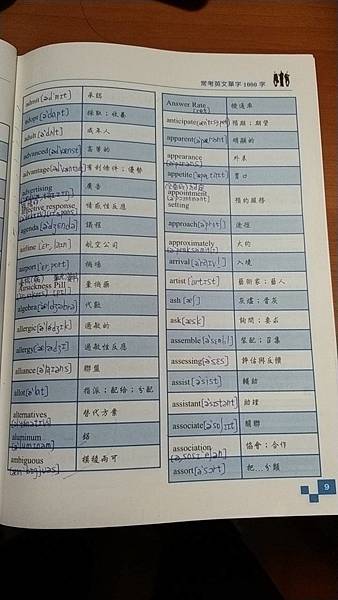 常考英文單字 1000 字
admit [əd'mɪt] 承認
adopt [ə'dɑpt] 採取；收養
adult [ə'dʌlt] 成年人
advanced 高等的
advantage 有利條件；優勢
advertising 廣告
affective response 情感性反應
agenda [ə'dʒɛndə] 議程
airline ['ɛr,laɪn] 航空公司
airport ['ɛr,port] 機場
Airsickness Pill 暈機藥
algebra ['ældʒəbrə] 代數
allergic [ə'lɝdʒɪk] 過敏的
allergy ['ælɚdʒɪ] 過敏性反應
alliance [ə'laɪəns] 聯盟
allot [ə'lɑt] 指派；配給；分配
alternatives 替代方案
aluminum 鋁
[ə'lumɪnəm]
ambiguous 模稜兩可
[æm'bɪgjuəs]
Answer Rate 接通率
(ret)
anticipate 預期；期望
apparent 明顯的
appearance 外表
appetite 胃口
appointment setting 預約服務
approach 途徑
approximately 大約
arrival 入境
artist [artɪst] 藝術家；藝人
ash [æʃ] 灰燼；骨灰
ask [æsk] 詢問；要求
assemble 裝配；召集
assessing 評估與反饋
assist [ə'sɪst] 輔助
assistant [ə'sɪstənt] 助理
associate 關聯
association 協會；合作
assort [ə'sɔrt] 把…分類
9